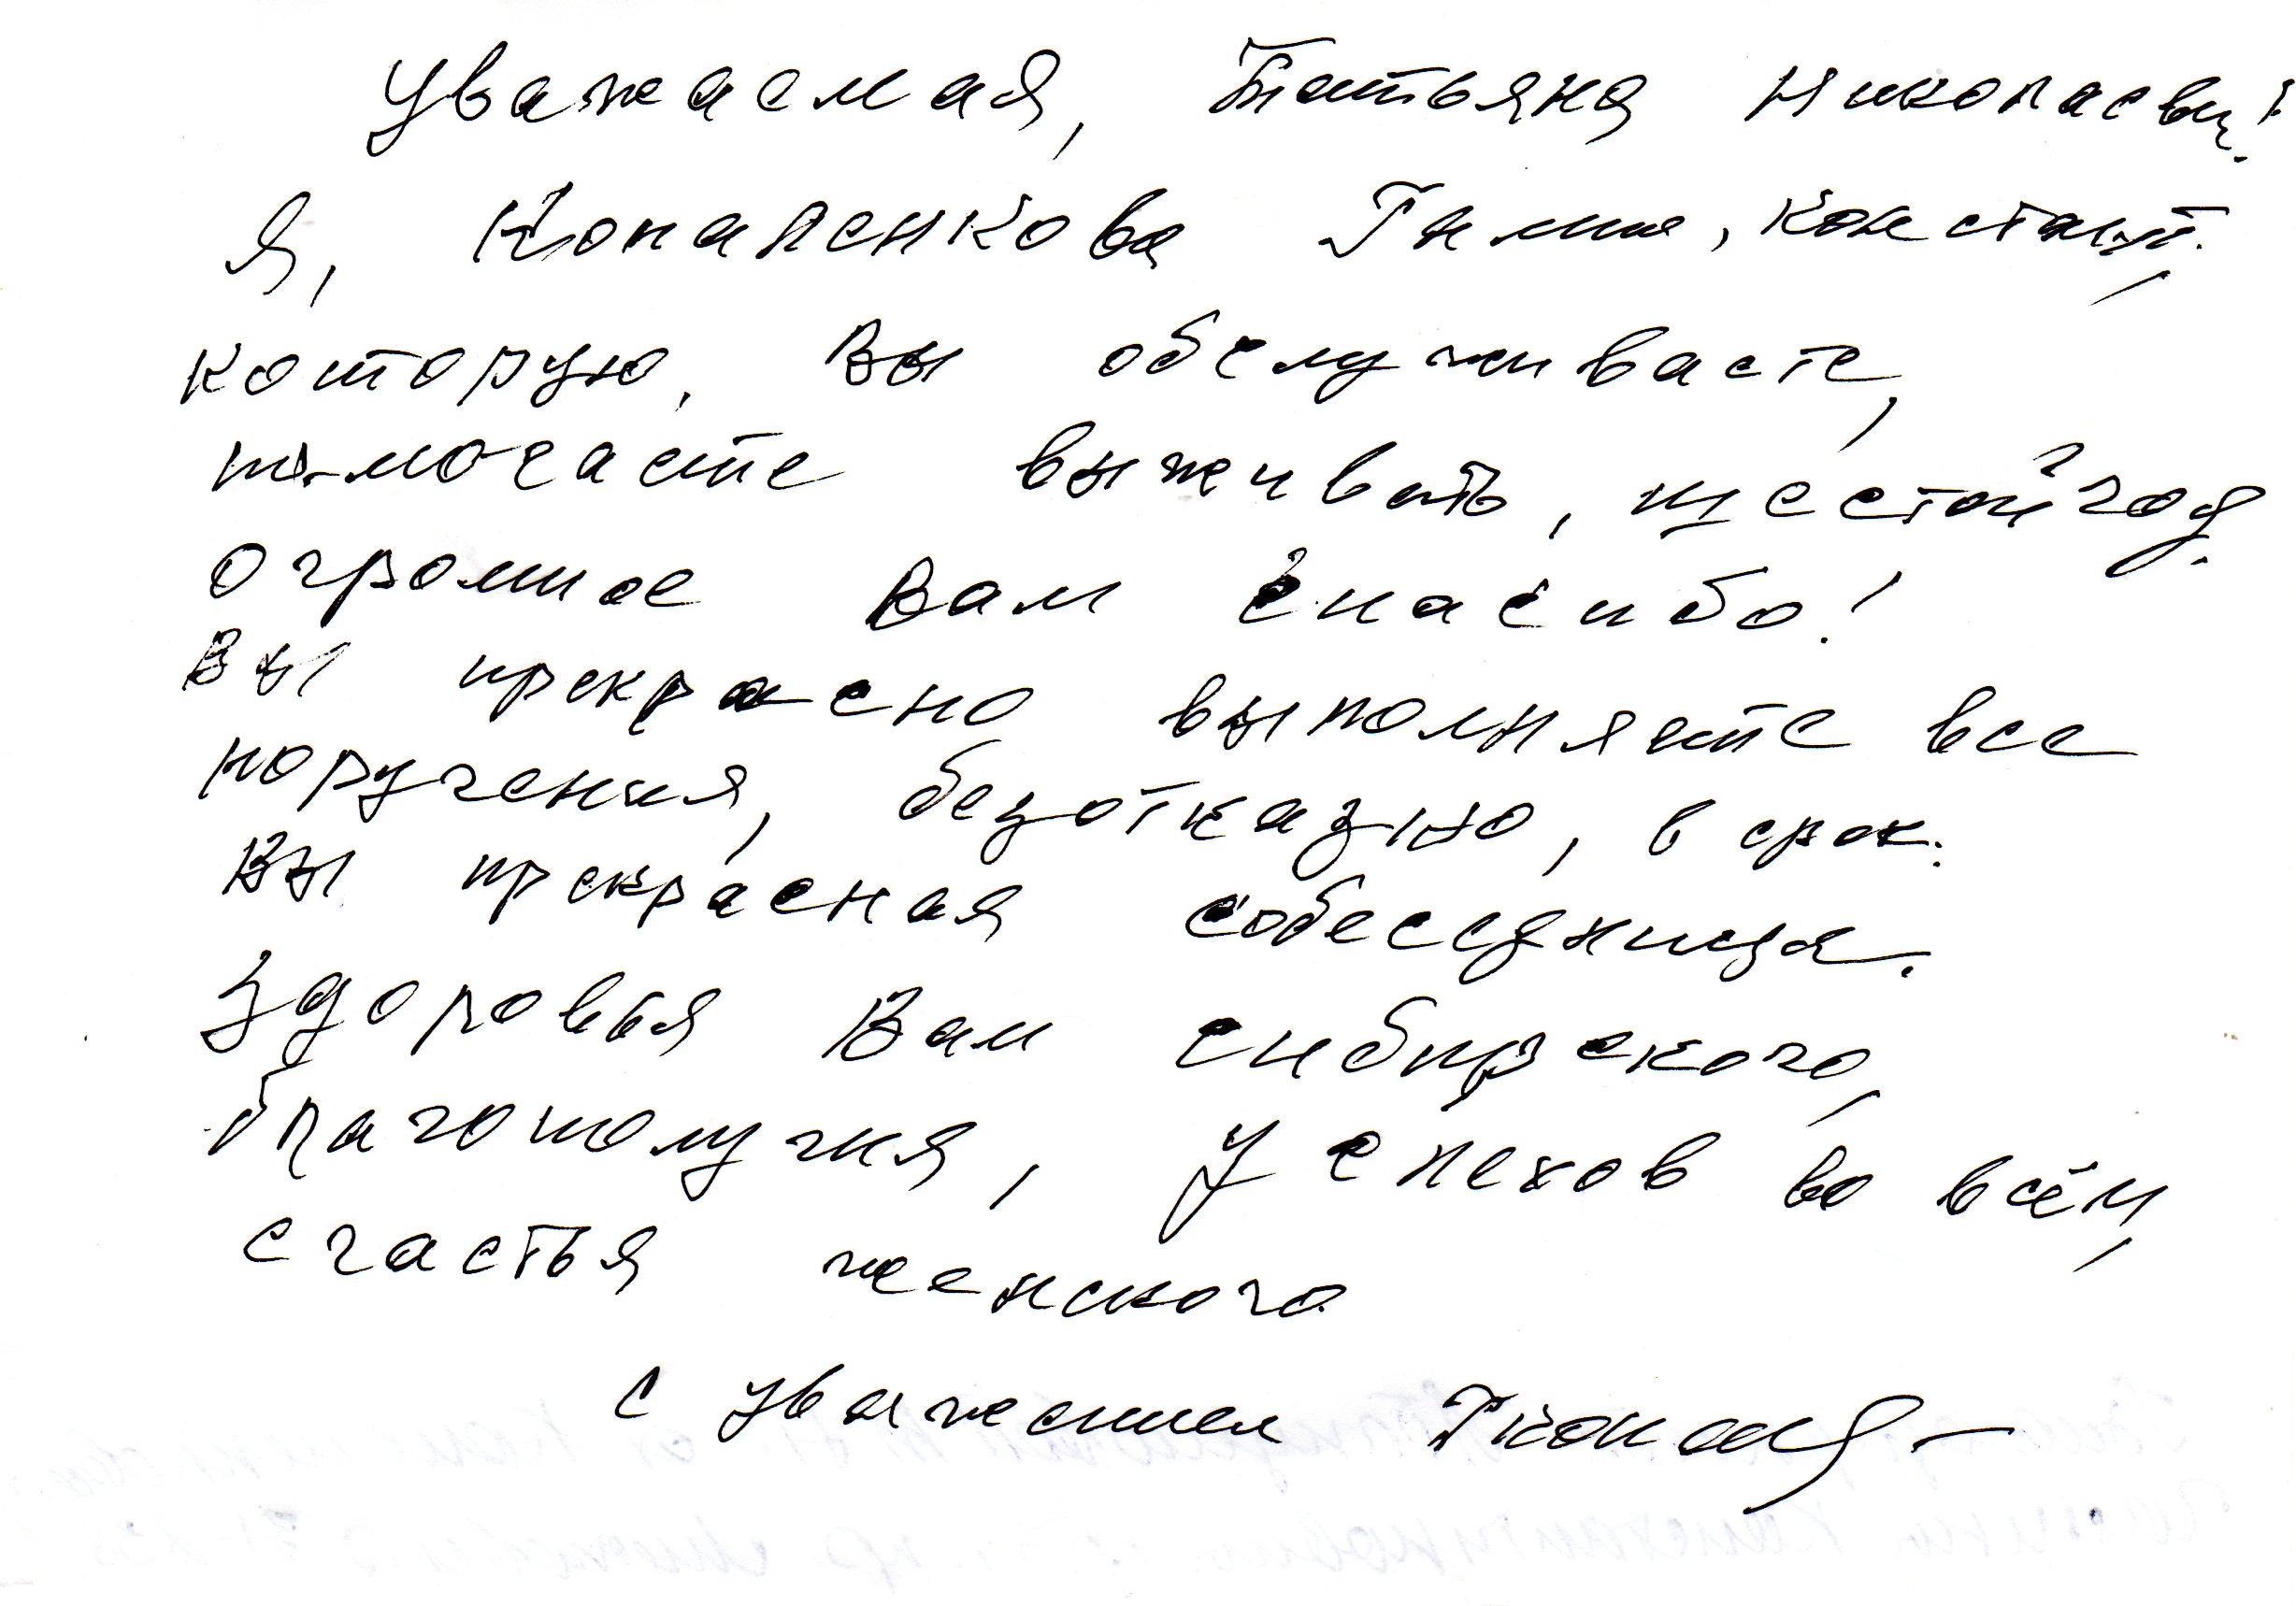 Уважаемая, Татьяна Николаевн!
Я, Коналенкова Галина, Констант.,
которую, Вы обслуживаете,
помогаете выживать, шестой год.
Огромное Вам спасибо!
Вы прекрасно выполняете все
поручения, безотказно, в срок.
Вы прекрасная собеседница.
Здоровья Вам сибирского,
благополучия, успехов во всём,
счастья женского.
С уважением